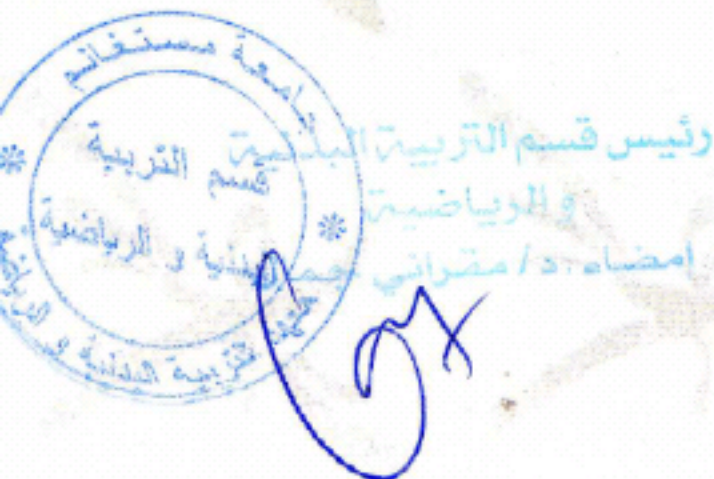 جامعة مستغانم
قسم التربية
البدنية و الرياضية
التربية البدنية و الرياضية
رئيس قسم التربية البدنية
و الرياضية
امضاء :د/ مقراني